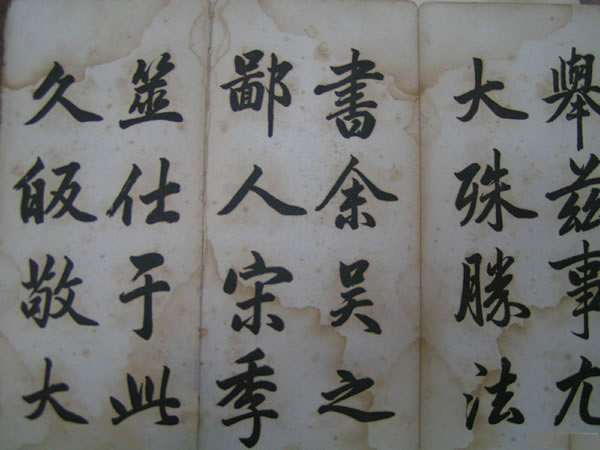 舉兹事尤
大殊勝法
書余吴之
鄙人宋季
筮仕于此
久皈敬大